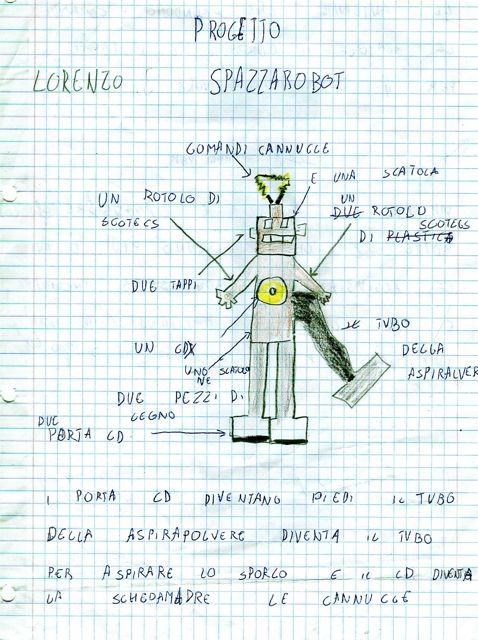 PROGETTO
LORENZO SPAZZAROBOT
COMANDI CANNUCCE
E UNA SCATOLA
UN ROTOLO DI
SCOTECS
UN
DUE ROTOLO
SCOTECS
DI PLASTICA
DUE TAPPI
TUBO
DELLA
ASPIRALVER
UN CD
UNO SCATOLO
NE
DUE PEZZI DI
LEGNO
DUE
PORTA CD
I PORTA CD DIVENTANO PIEDI IL TUBO
DELLA ASPIRAPOLVERE DIVENTA IL TUBO
PER ASPIRARE LO SPORCO E IL CD DIVENTA
LA SCHEDAMADRE LE CANNUCCE